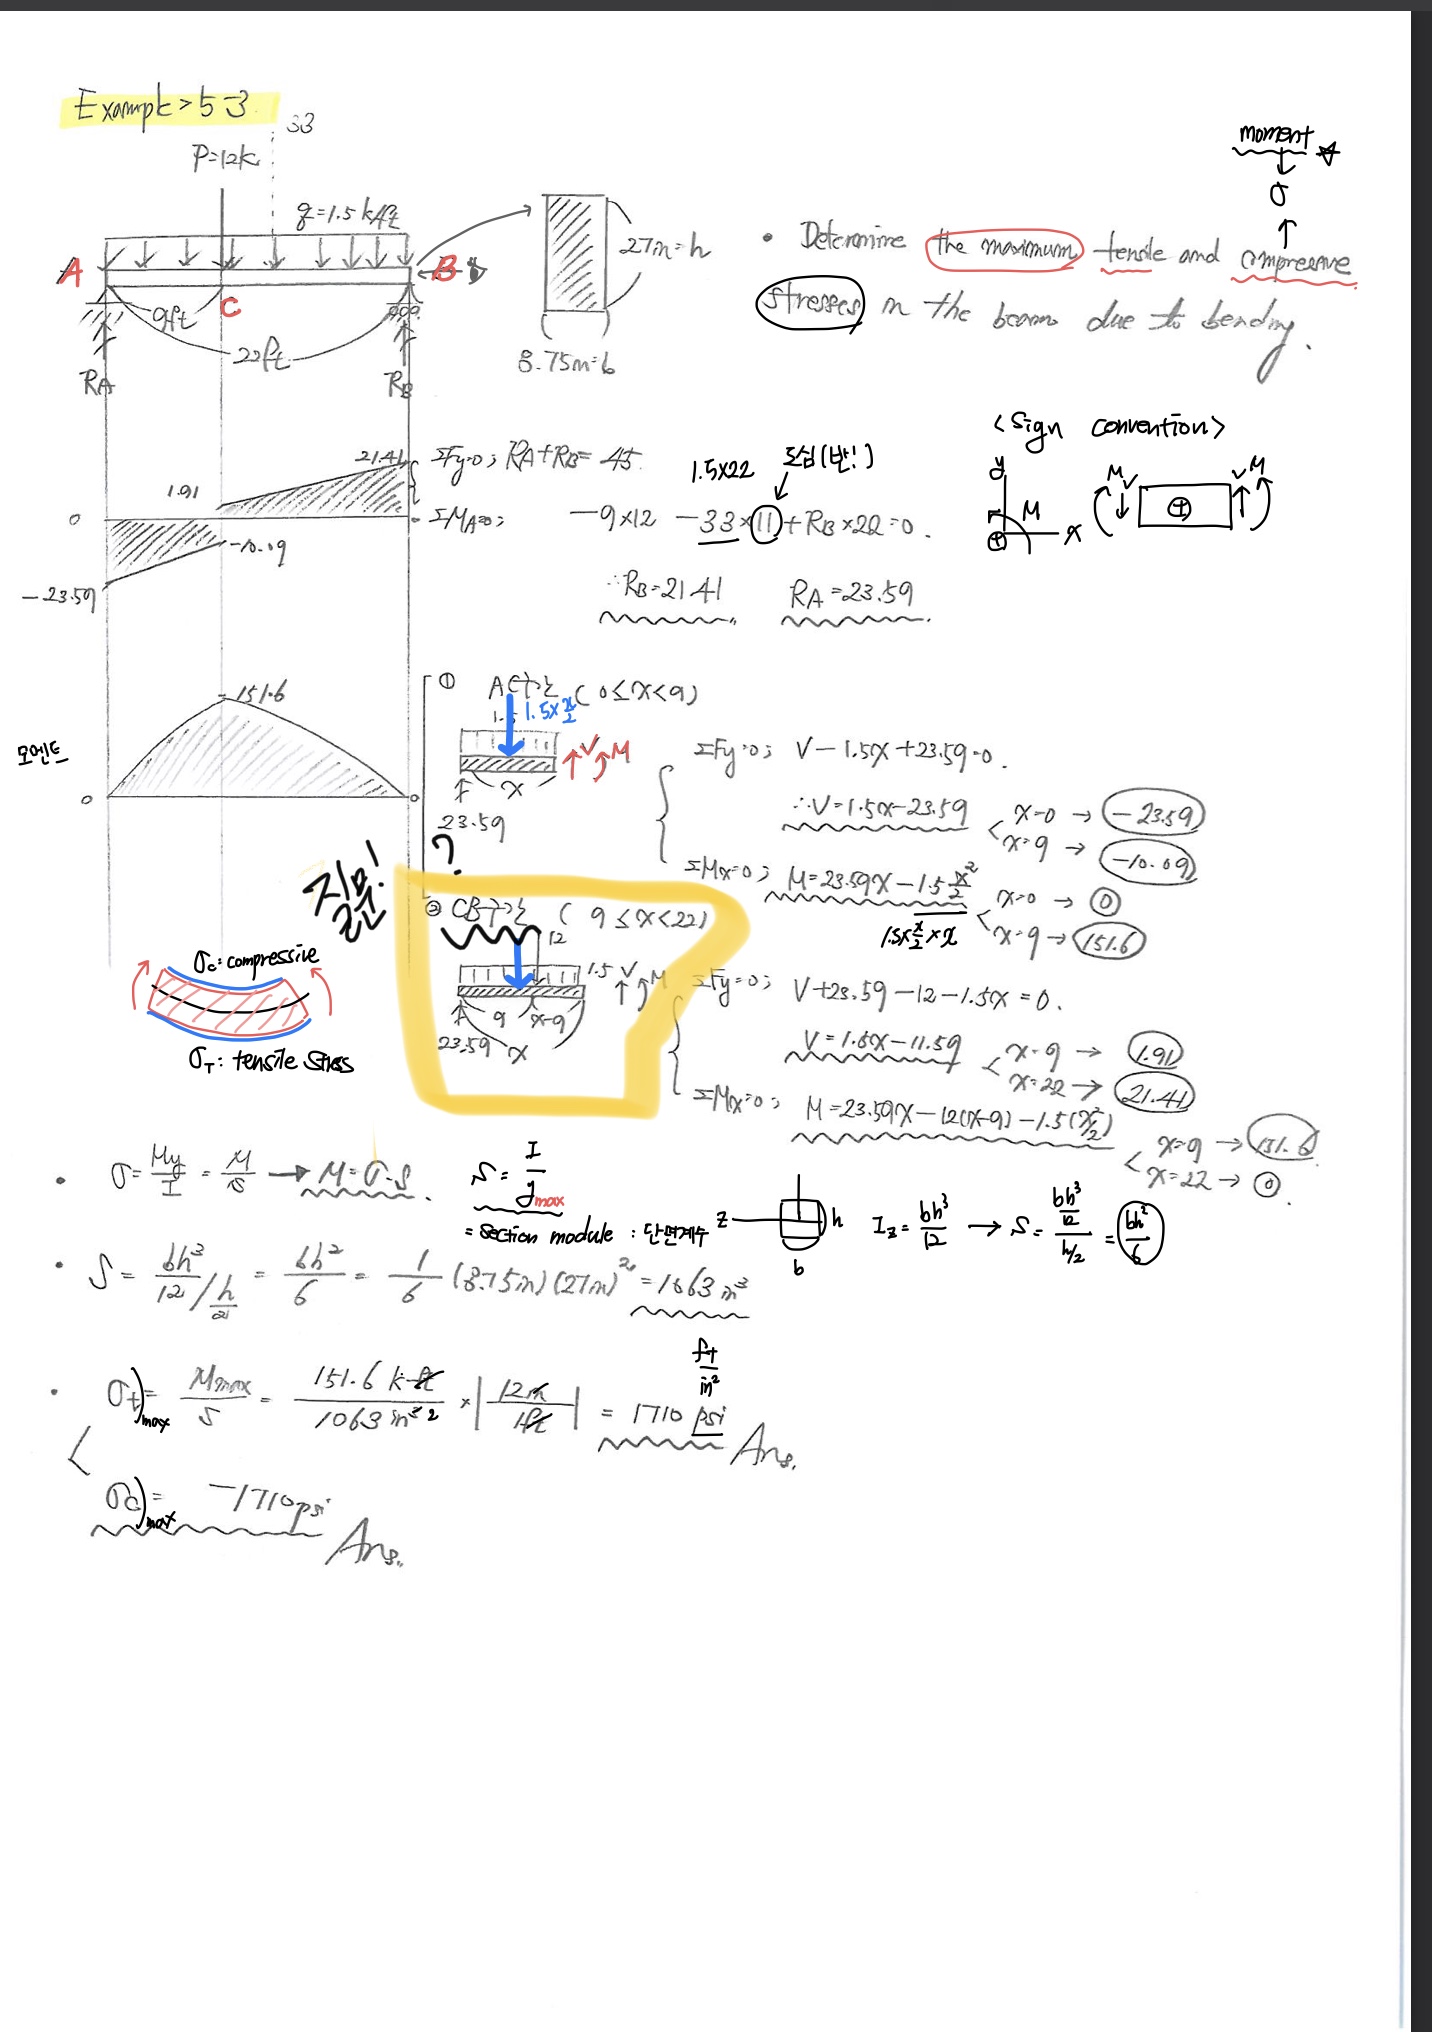 Example> 5-3
33
P=12k
q=1.5 k/ft
A
B
C
9ft
22ft
RA
RB
27in=h
8.75in=b
moment ☆
↓
σ
↑
• Determine the maximum tensile and compressive
stresses in the beam due to bending.
<Sign convention>
y
M
x
M V
V M
21.41
1.91
0
-10.09
-23.59
ΣFy=0; RA+RB= 45
1.5x22
도심(반!)
ΣMA=0; -9x12 -33x11+RBx22=0.
∴RB=21.41 RA=23.59
151.6
모멘트
0
0
① AC구간 (0≤x<9)
1.5
1.5x x/2
V M
x
23.59
ΣFy=0; V-1.5x+23.59=0.
∴V=1.5x-23.59
x=0 → -23.59
x=9 → -10.09
ΣMx=0; M=23.59x-1.5 x²/2
1.5x x/2 × x
x=0 → 0
x=9 → 151.6
질문!
?
② CB구간 (9≤x<22)
12
1.5 V M
9 x-9
23.59 x
ΣFy=0; V+23.59-12-1.5x=0.
V=1.5x-11.59
x=9 → 1.91
x=22 → 21.41
ΣMx=0; M=23.59x-12(x-9)-1.5(x²/2)
x=9 → 151.6
x=22 → 0.
σc: compressive
σT: tensile stress
• σ= My/I = M/S → M=σ·S.
S = I/ymax
= section module : 단면계수
z
h
b
Iz = bh³/12 → S = (bh³/12)/(h/2) = bh²/6
• S = bh³/12 / h/2 = bh²/6 = 1/6 (8.75in)(27in)² = 1063 in³
ft/in²
• σt)max = Mmax/S = 151.6 k-ft/1063 in³ ² × |12in/1ft| = 1710 psi Ans.
σc)max = -1710psi Ans.